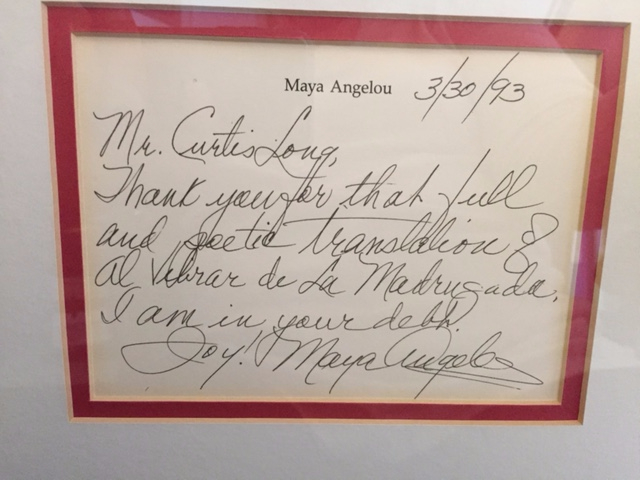 Maya Angelou 3/30/93
Mr. Curtis Long,
Thank you for that full
and poetic translation of
Al Vibrar de La Madrugada.
I am in your debt.
Joy! Maya Angelou